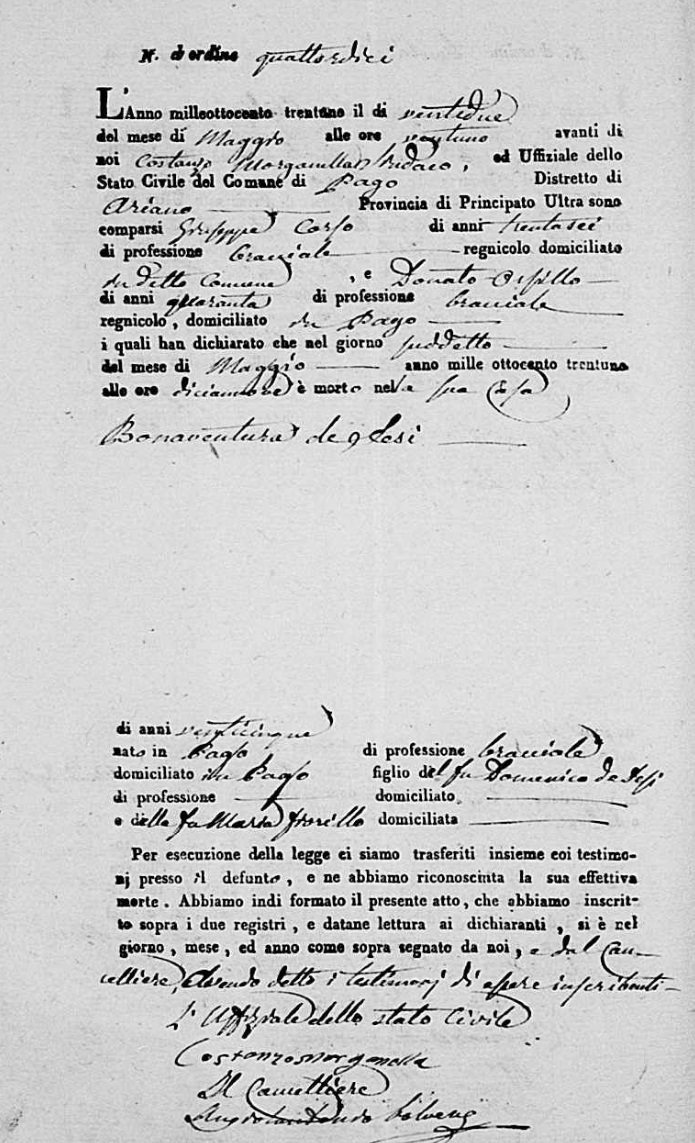 N. d'ordine quattordici
L'Anno milleottocento trentuno il di ventidue
del mese di Maggio alle ore ventuno avanti di
noi Costanzo Morganella Sindaco, ed Uffiziale dello
Stato Civile del Comune di Pago Distretto di
Ariano Provincia di Principato Ultra sono
comparsi Giuseppe Corso di anni trentasei
di professione bracciale regnicolo domiciliato
in detto Comune, e Donato
di anni quaranta di professione bracciale
regnicolo, domiciliato in Pago
i quali han dichiarato che nel giorno suddetto
del mese di Maggio anno mille ottocento trentuno
alle ore diciannove è morto nella sua Casa
Bonaventura de
di anni venticinque
nato in Pago di professione bracciale
domiciliato in Pago figlio del fu Domenico de
di professione domiciliato
e della fu Maria Fiorillo domiciliata
Per esecuzione della legge ci siamo trasferiti insieme coi testimo-
nj presso il defunto, e ne abbiamo riconosciuta la sua effettiva
morte. Abbiamo indi formato il presente atto, che abbiamo inscrit-
to sopra i due registri, e datane lettura ai dichiaranti, si è nel
giorno, mese, ed anno come sopra segnato da noi, e dal Can-
celliere, avendo detto i testimonj di essere inscribenti
L'Uffiziale dello stato Civile
Costanzo Morganella
Il Cancelliere